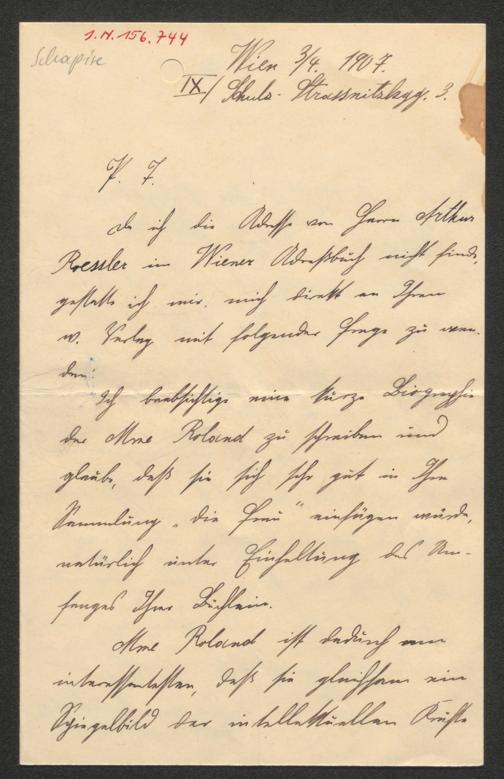 I.N. 156.744
Schapire
Wien 3/4. 1907.
IX/ Schulz-Strassnitzkgg. 3.
P. T.
Da ich die Adresse von Herrn Arthur
Roessler im Wiener Adreßbuch nicht finde,
gestatte ich mir, mich direkt an Ihren
w. Verlag mit folgender Frage zu wen-
den:
Ich beabsichtige eine kurze Biographie
der Mme Roland zu schreiben und
glaube, daß sie sich sehr gut in Ihre
Sammlung „die Frau" einfügen würde,
natürlich unter Einhaltung des Um-
fanges Ihrer Büchlein.
Mme Roland ist dadurch am
interessantesten, daß sie gleichsam ein
Spiegelbild der intellektuellen Kräfte